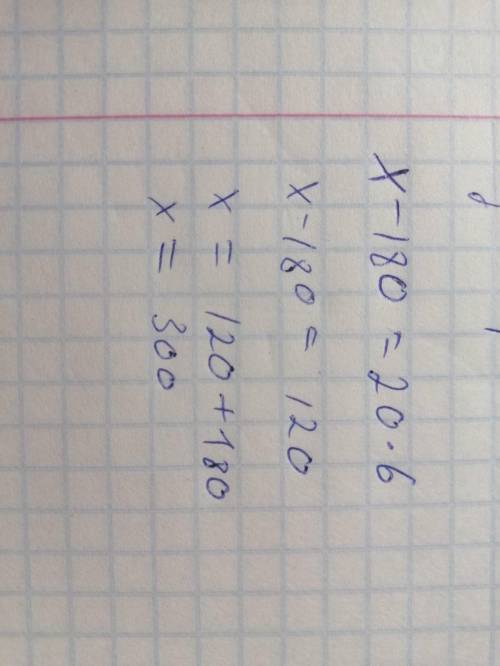 x - 180 = 20 · 6
x - 180 = 120
x = 120 + 180
x = 300